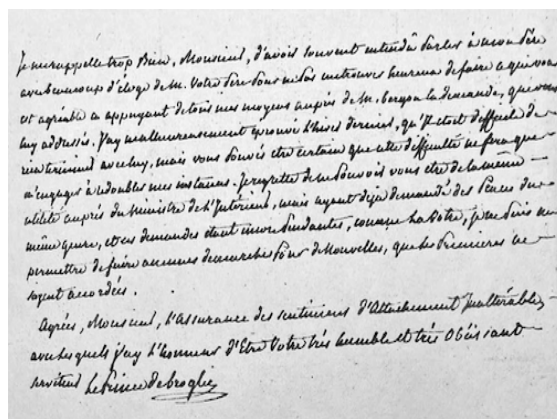 Je me rappelle trop bien, Monsieur, d'avoir souvent entendu parler à mon Père
avec beaucoup d'éloge de M. votre Père pour ne pas me trouver heureux de faire ce que vous
est agréable en appuyant de tous mes moyens auprès de M. la demande, que vous
luy addressés. J'ay malheureusement éprouvé l'hiver dernier, qu'il etoit difficile de
rien terminer avec luy, mais vous pouvés etre certain que cette difficulté ne fera que
m'engager à redoubler mes instances. Je regrette de ne pouvoir vous etre de la meme
utilité auprès du Ministre de l'Intérieur, mais ayant deja demandé des Graces du
même genre, et ces demandes etant encore pendantes, comme la votre, je ne puis me
permettre de faire aucunes demarches pour de Nouvelles, que les Premieres ne
soyent accordées.
Agrées, Monsieur, l'Assurance des sentimens d'Attachement Inaltérable,
avec lesquels j'ay l'honneur d'Etre Votre très humble et très Obéissant
serviteur Le Prince de broglie